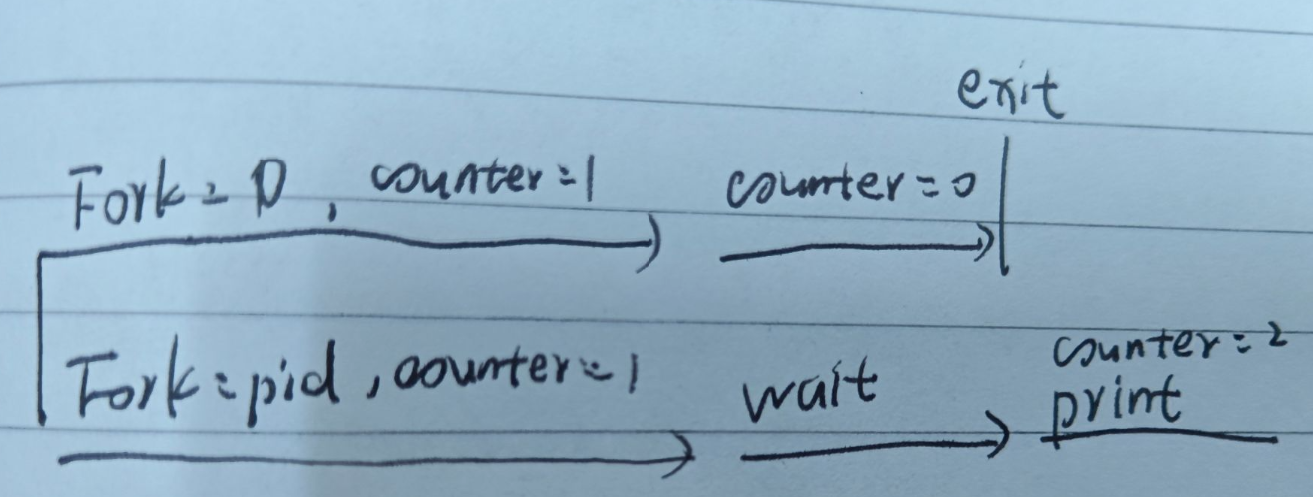 exit
Fork = 0, counter=1 counter=0
Fork=pid, counter=1 wait counter=2
print